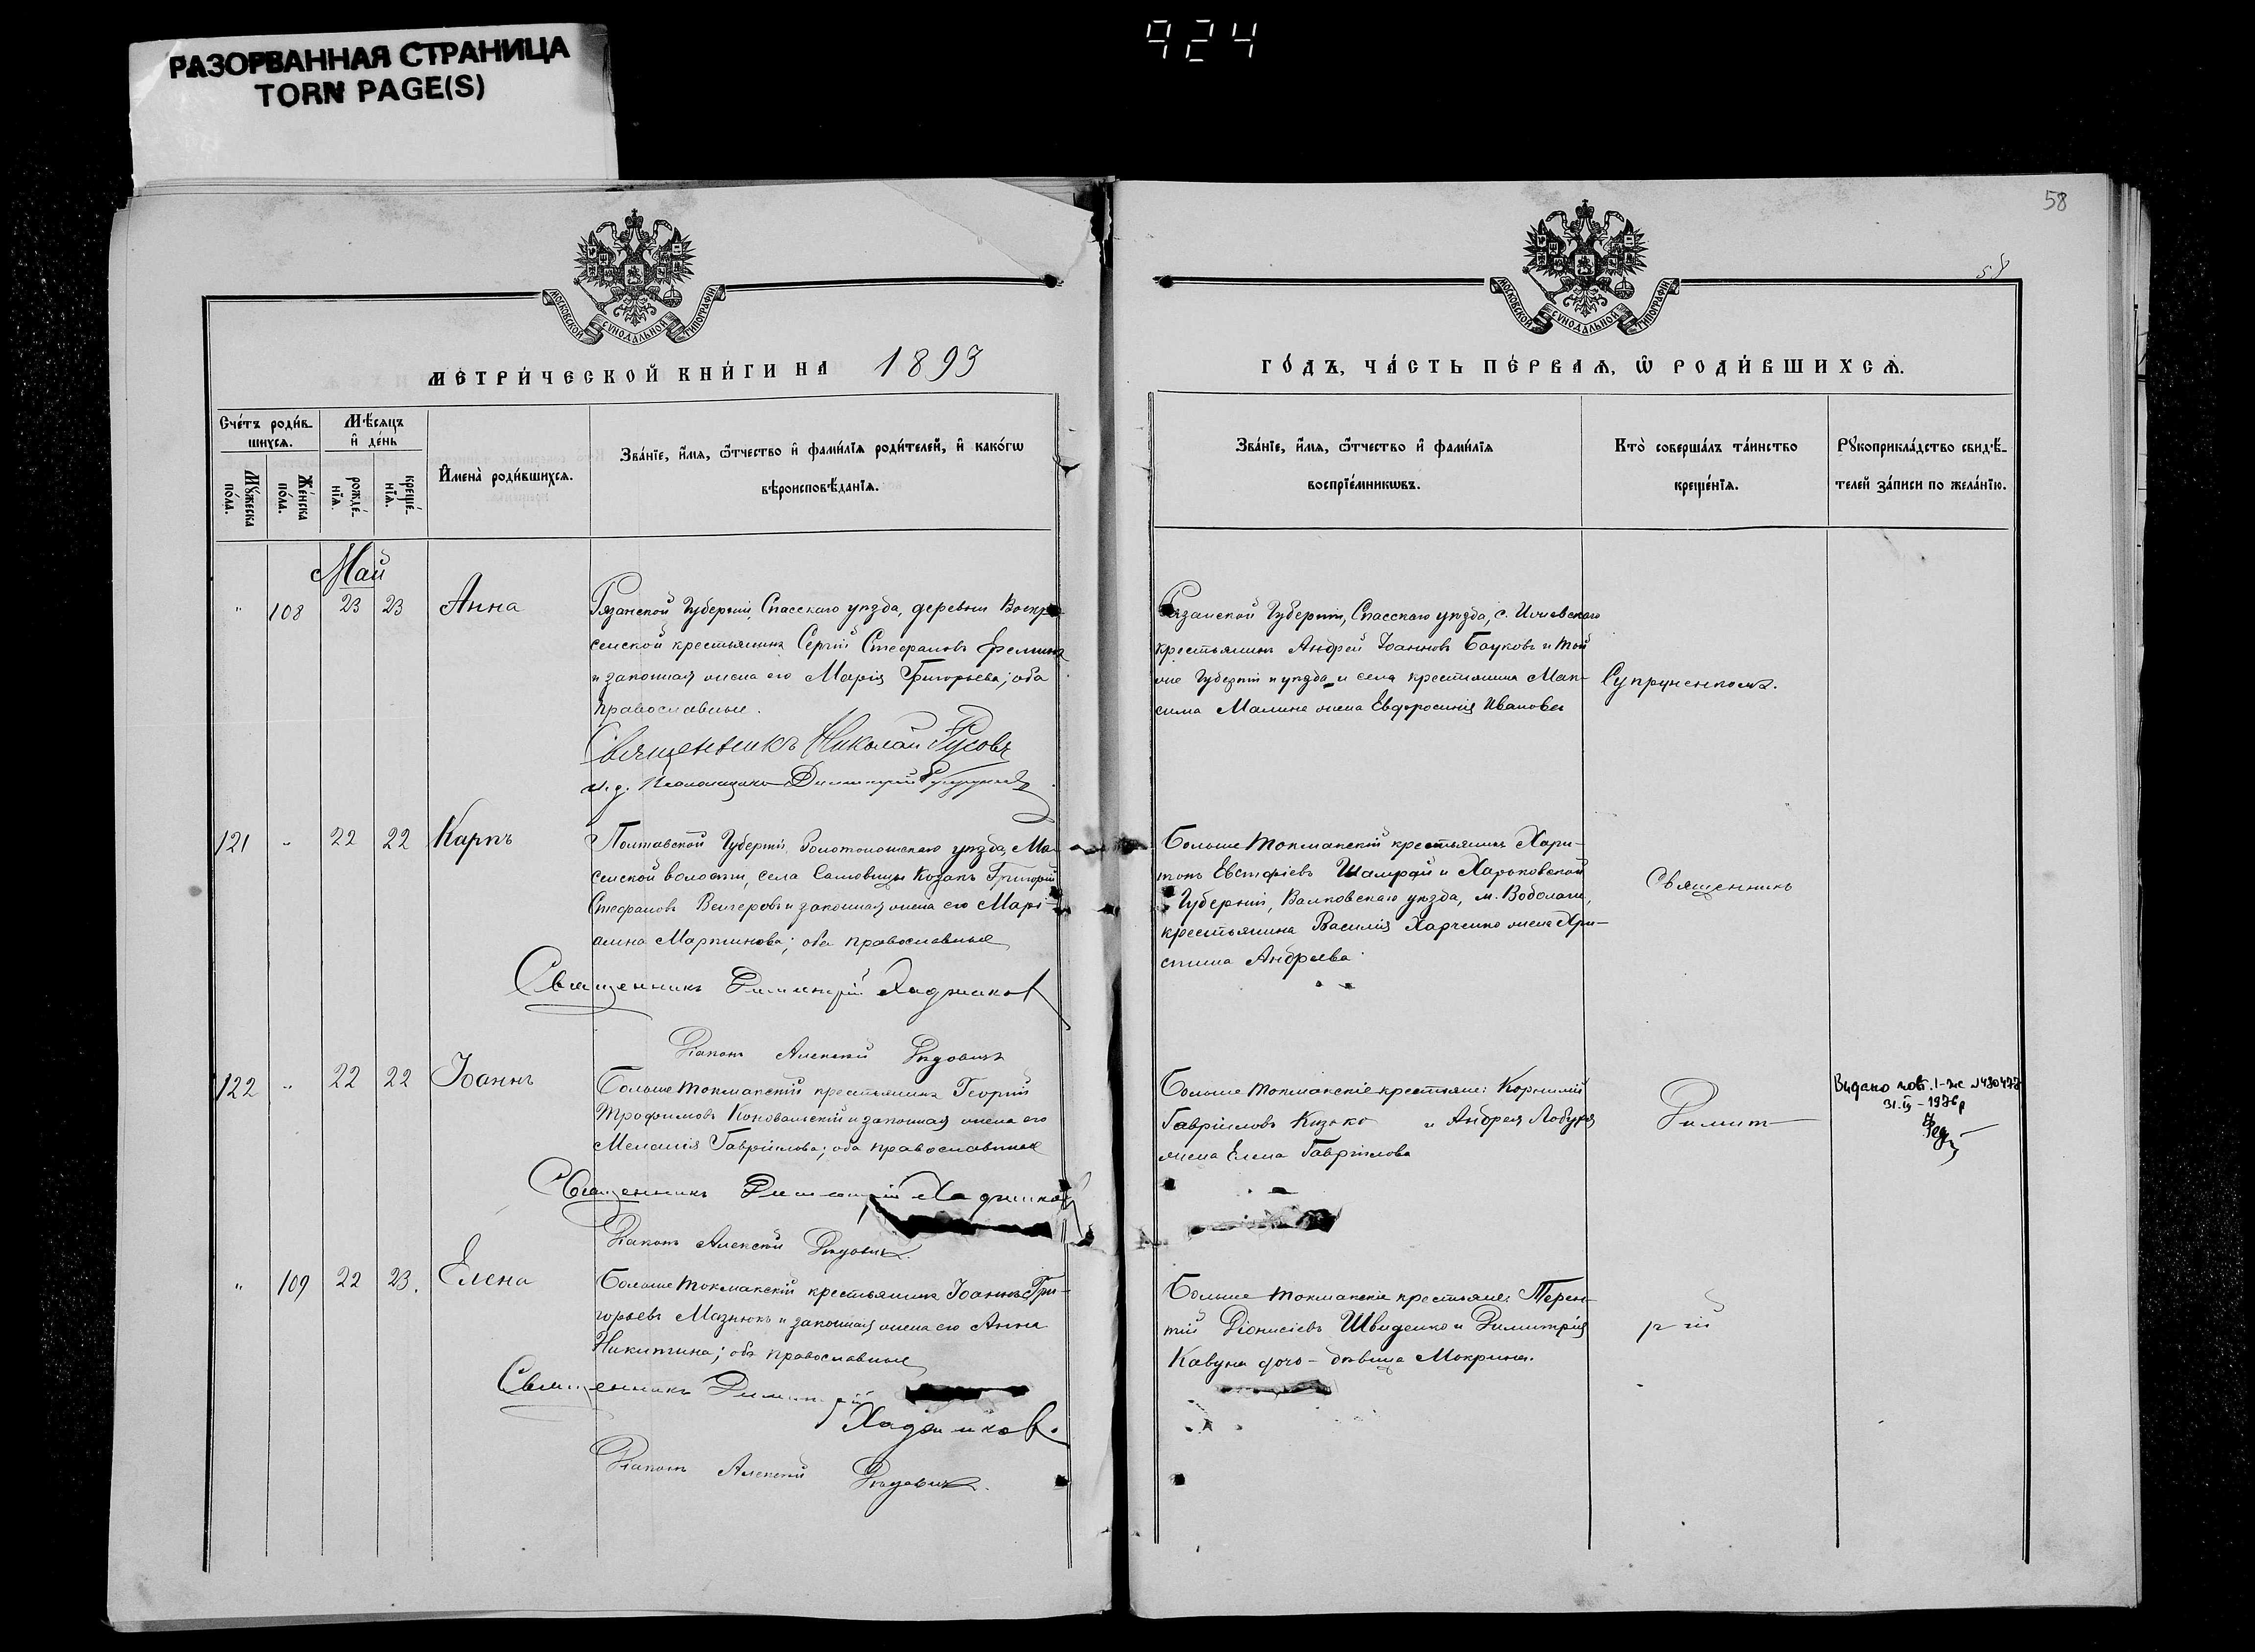 РАЗОРВАННАЯ СТРАНИЦА
TORN PAGE(S)
924
58
58
МОСКОВСКОЙ СѴНОДАЛЬНОЙ ТИПОГРАФІИ
МОСКОВСКОЙ СѴНОДАЛЬНОЙ ТИПОГРАФІИ
МЕТРИ́ЧЕСКОЙ КНИ́ГИ НА 1893
ГО́ДЪ, ЧА́СТЬ ПЕ́РВАѦ, Ѡ҆ РОДИ́ВШИХСѦ.
Сче́тъ роди́в-
шихсѧ.
Мꙋ́жеска
по́ла.
Же́нска
по́ла.
Мѣ́сѧцъ
и҆ де́нь
рожде́-
нїѧ.
креще́-
нїѧ.
И҆мена̀ роди́вшихсѧ.
Зва́нїе, и҆́мѧ, ѻ҆́тчество и҆ фами́лїѧ роди́телей, и҆ како́гѡ
вѣроисповѣ́данїѧ.
Зва́нїе, и҆́мѧ, ѻ҆́тчество и҆ фами́лїѧ
воспрїе́мникѡвъ.
Кто̀ соверша́лъ та́инство
креще́нїѧ.
Рꙋкоприкла́дство свидѣ́-
телей за́писи по жела́нїю.
Май
" 108 23 23 Анна
Рязанской Губерніи, Спасскаго уѣзда, деревни Воскре
сенской крестьянинъ Сергій Стефановъ
и законная жена его Марія Григорьева; оба
православные.
Священникъ Николай Русовъ
и. д. Псаломщика Димитрій
Рязанской Губерніи, Спасскаго уѣзда, с.
крестьянинъ Андрей Іоанновъ Бауковъ и той
же Губерніи и уѣзда и села крестьянина Мак-
сима Малина жена Евфросинія Иванова
Супруненкомъ.
121 " 22 22 Карпъ
Полтавской Губерніи, Золотоношскаго уѣзда,
сенской волости, села Козакъ Григорій
Стефановъ Венгеровъ и законная жена его Марі-
амна Мартинова; оба православные
Священникъ Димитрій Хаджиковъ
Діаконъ Алексѣй Дѣдовичъ
Больше Токмакскій крестьянинъ Хари-
тонъ Евстафіевъ Шамрай и Харьковской
Губерніи, Валковскаго уѣзда, м. Водолаги,
крестьянина Василія Харченко жена Хри-
стина Андреева.
Священникъ
122 " 22 22 Іоаннъ
Больше Токмакскій крестьянинъ Георгій
Трофимовъ Коновальскій и законная жена его
Меланія Гавріилова; оба православные
Священникъ Димитрій Хаджиковъ
Діаконъ Алексѣй Дѣдовичъ
Больше Токмакскіе крестьяне: Корнилій
Гавріиловъ Козько и Андрея Лобуря
жена Елена Гавріилова
Димит
Видано повт. І-ЖС №480478
31.ІХ-1976р
" 109 22 23. Елена
Больше Токмакскій крестьянинъ Іоаннъ Гри-
горьевъ Мазнюкъ и законная жена его Анна
Никитина; оба православные
Священникъ Димитрій
Хаджиковъ.
Діаконъ Алексѣй Дѣдовичъ.
Больше Токмакскіе крестьяне: Терен-
тій Діонисіевъ Швиденко и Димитрія
Кавуна дочь - дѣвица Мокрина.
рій